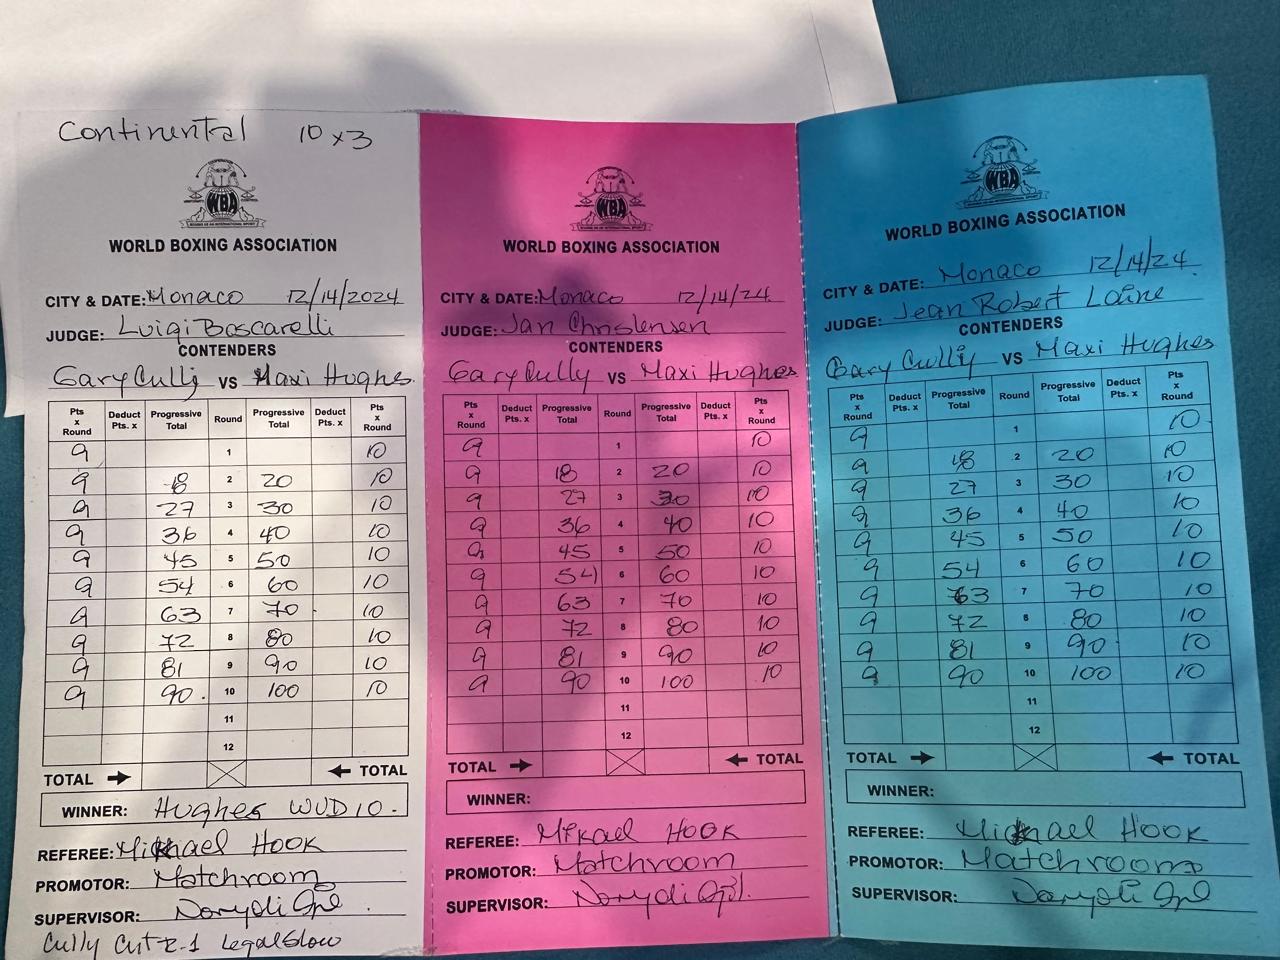 Continental 10 x 3
WBA
WORLD BOXING ASSOCIATION
CITY & DATE: Monaco 12/14/2024
JUDGE: Luigi Boscarelli
CONTENDERS
Gary Cully VS Maxi Hughes
Pts x Round Deduct Pts. x Progressive Total Round Progressive Total Deduct Pts. x Pts x Round
9 1 10
9 18 2 20 10
9 27 3 30 10
9 36 4 40 10
9 45 5 50 10
9 54 6 60 10
9 63 7 70 10
9 72 8 80 10
9 81 9 90 10
9 90 10 100 10
11
12
TOTAL TOTAL
WINNER: Hughes WUD 10.
REFEREE: Mikael HOOK
PROMOTOR: Matchroom
SUPERVISOR:
Cully Cut R-1 Legal Blow
WBA
WORLD BOXING ASSOCIATION
CITY & DATE: Monaco 12/14/24
JUDGE: Jan Christensen
CONTENDERS
Gary Cully VS Maxi Hughes
Pts x Round Deduct Pts. x Progressive Total Round Progressive Total Deduct Pts. x Pts x Round
9 1 10
9 18 2 20 10
9 27 3 30 10
9 36 4 40 10
9 45 5 50 10
9 54 6 60 10
9 63 7 70 10
9 72 8 80 10
9 81 9 90 10
9 90 10 100 10
11
12
TOTAL TOTAL
WINNER:
REFEREE: Mikael HOOK
PROMOTOR: Matchroom
SUPERVISOR:
WBA
WORLD BOXING ASSOCIATION
CITY & DATE: Monaco 12/14/24
JUDGE: Jean Robert Laine
CONTENDERS
Gary Cully VS Maxi Hughes
Pts x Round Deduct Pts. x Progressive Total Round Progressive Total Deduct Pts. x Pts x Round
9 1 10
9 18 2 20 10
9 27 3 30 10
9 36 4 40 10
9 45 5 50 10
9 54 6 60 10
9 63 7 70 10
9 72 8 80 10
9 81 9 90 10
9 90 10 100 10
11
12
TOTAL TOTAL
WINNER:
REFEREE: Mikael HOOK
PROMOTOR: Matchroom
SUPERVISOR: